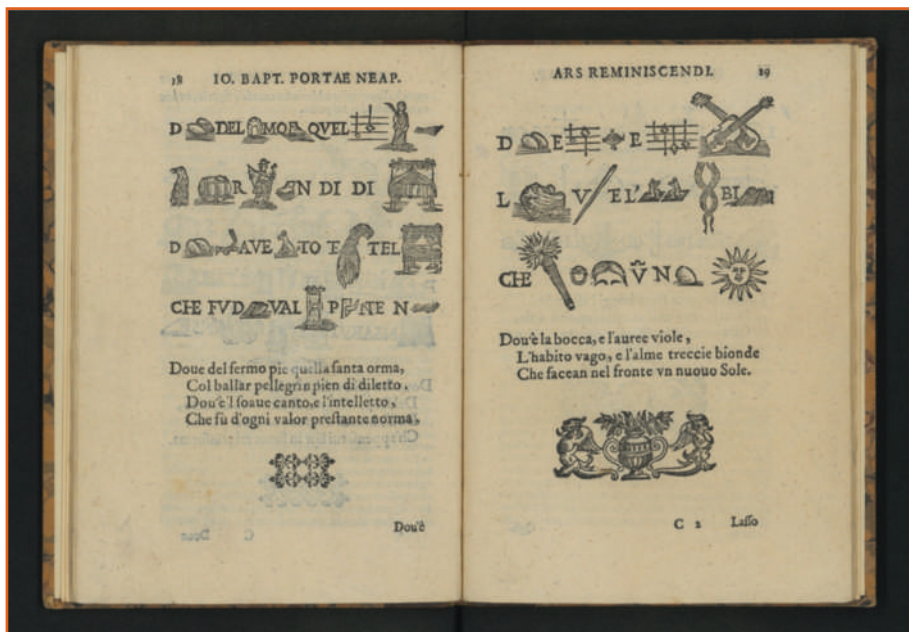 18 IO. BAPT. PORTAE NEAP.
D DEL MOR QVEL
R N DI DI
D AVE TO E TEL
CHE FVD VAL P TE N
Doue del fermo pie quella santa orma,
Col ballar pellegrin pien di diletto,
Dou'è'l soaue canto, e l'intelletto,
Che fù d'ogni valor prestante norma,
Dou'è
ARS REMINISCENDI. 19
D E E
L V E L' BI
CHE O V̈ N
Dou'è la bocca, e l'auree viole,
L'habito vago, e l'alme treccie bionde
Che facean nel fronte vn nuouo Sole.
C 2 Lasso